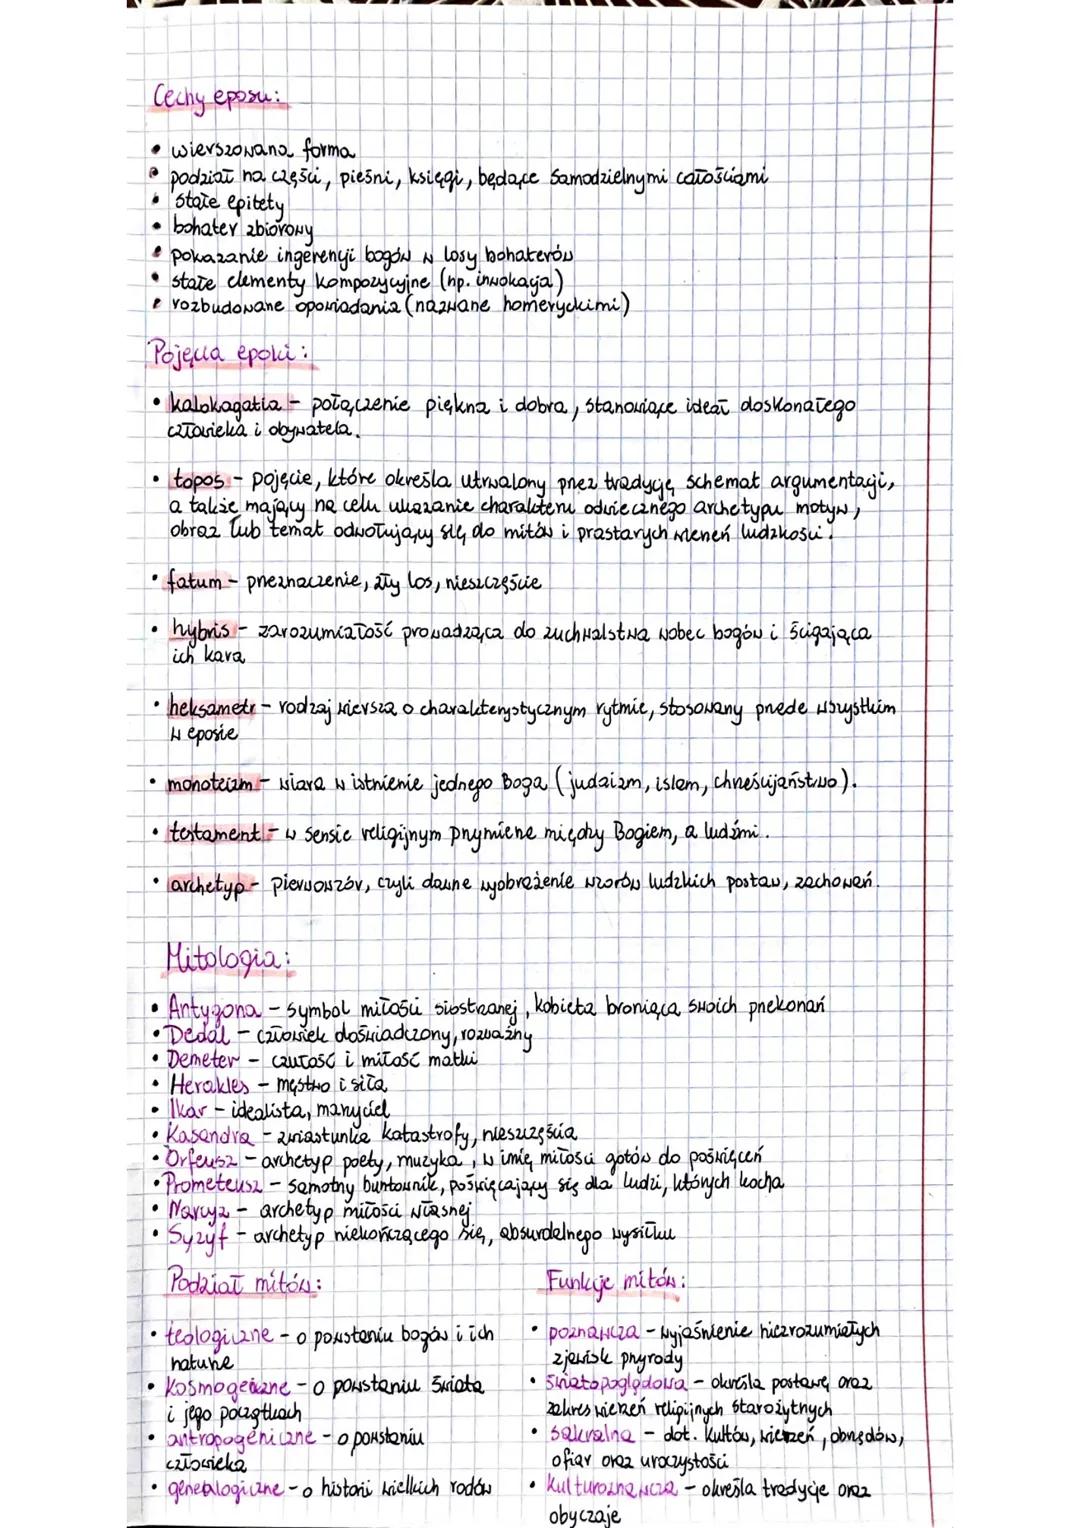 Cechy eposu:
• wierszowana forma
• podział na części, pieśni, księgi, będące samodzielnymi całościami
• stałe epitety
• bohater zbiorowy
• pokazanie ingerencji bogów w losy bohaterów
• stałe elementy kompozycyjne (np. inwokacja)
• rozbudowane opowiadania (nazwane homeryckimi)
Pojęcia epoki:
• kalokagatia - połączenie piękna i dobra, stanowiące ideał doskonałego
człowieka i obywatela.
• topos - pojęcie, które określa utrwalony przez tradycję schemat argumentacji,
a także mający na celu ukazanie charakteru odwiecznego archetypu motyw,
obraz lub temat odwołujący się do mitów i prastarych wierzeń ludzkości.
• fatum - przeznaczenie, zły los, nieszczęście
• hybris - zarozumiałość prowadząca do zuchwalstwa wobec bogów i ścigająca
ich kara
• heksametr - rodzaj wiersza o charakterystycznym rytmie, stosowany przede wszystkim
w eposie
• monoteizm - wiara w istnienie jednego Boga (judaizm, islam, chrześcijaństwo).
• testament - w sensie religijnym przymierze między Bogiem, a ludźmi.
• archetyp - pierwowzór, czyli dawne wyobrażenie wzorów ludzkich postaw, zachowań.
Mitologia:
• Antygona - symbol miłości siostrzanej, kobieta broniąca swoich przekonań
• Dedal - człowiek doświadczony, rozważny
• Demeter - czułość i miłość matki
• Herakles - męstwo i siła
• Ikar - idealista, marzyciel
• Kasandra - zwiastunka katastrofy, nieszczęścia
• Orfeusz - archetyp poety, muzyka, w imię miłości gotów do poświęceń
• Prometeusz - samotny buntownik, poświęcający się dla ludzi, których kocha
• Narcyz - archetyp miłości własnej
• Syzyf - archetyp niekończącego się, absurdalnego wysiłku
Podział mitów:
• teologiczne - o powstaniu bogów i ich
naturze
• kosmogeniczne - o powstaniu świata
i jego początkach
• antropogeniczne - o powstaniu
człowieka
• genealogiczne - o historii wielkich rodów
Funkcje mitów:
• poznawcza - wyjaśnienie niezrozumiałych
zjawisk przyrody
• światopoglądowa - określa postawę oraz
zakres wierzeń religijnych starożytnych
• sakralna - dot. kultów, wierzeń, obrzędów,
ofiar oraz uroczystości
• kulturoznawcza - określa tradycje oraz
obyczaje